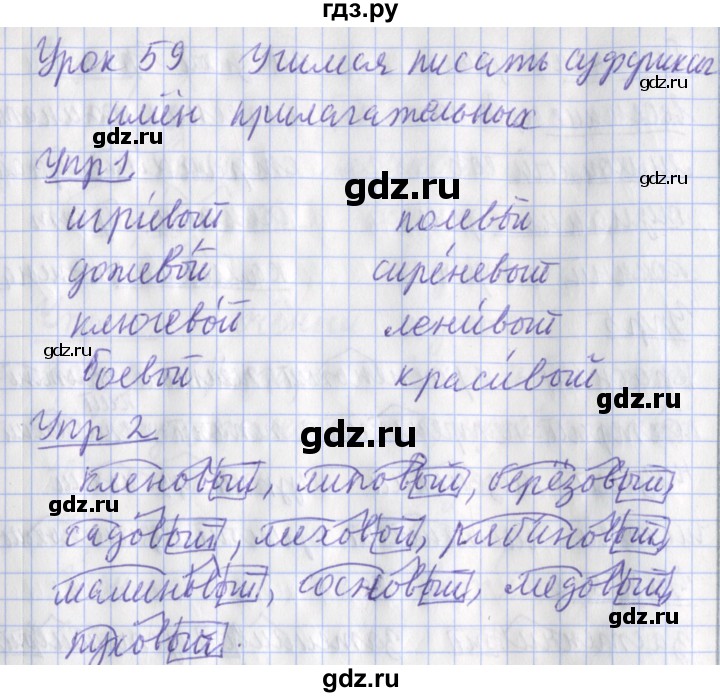 гдз.ру
Урок 59 Учимся писать суффиксы
gdz.ru
имён прилагательных
gdz.ru
Упр 1
gdz.ru
gdz.ru
игри́вый полево́й
дожево́й сире́невый
ключево́й лени́вый
gdz.ru
боевой краси́вый
gdz.ru
Упр 2
gdz.ru
кленовый, липовый, берёзовый
gdz.ru
садовый, меховой, рябиновый,
малиновый, сосновый, медовый,
gdz.ru
gdz.ru
пуховый.
gdz.ru